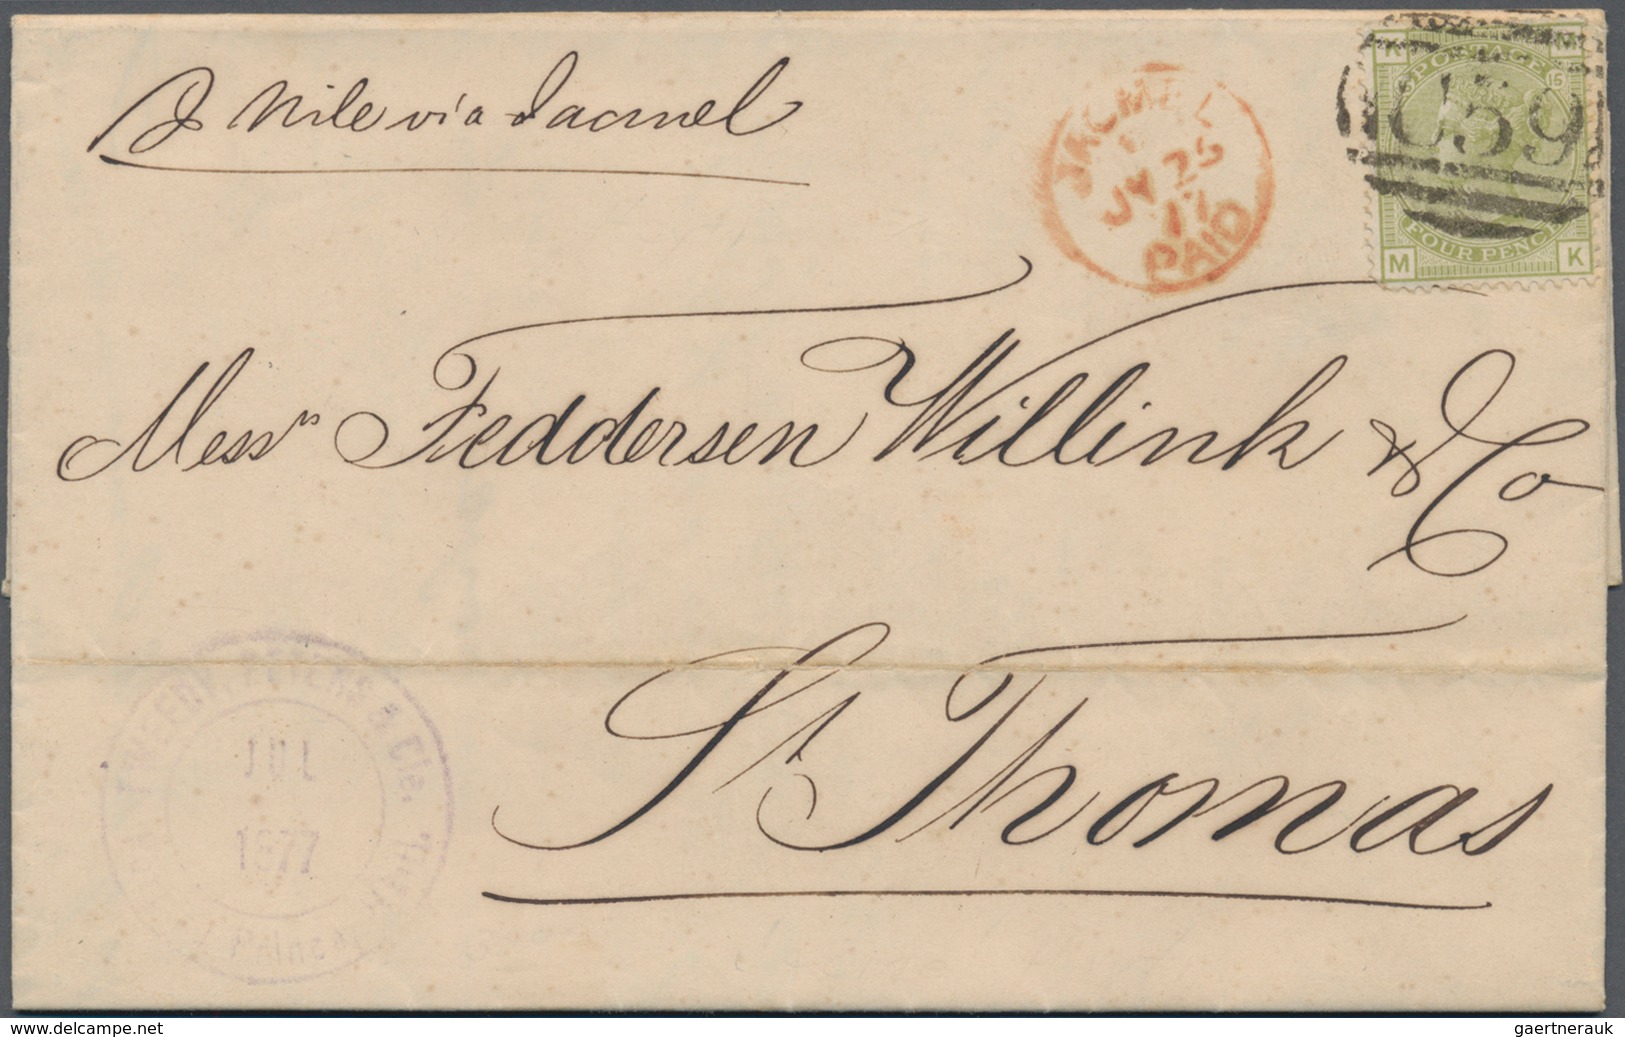 ℘ Nile via Jacmel
JACMEL
JY 25
77
PAID
K M
POSTAGE
15
C59
FOUR PENCE
M K
Messrs Feddersen Willink & Co
St Thomas
& Cie.
JUL
1877
Prince
www.delcampe.net
gaertnerauk